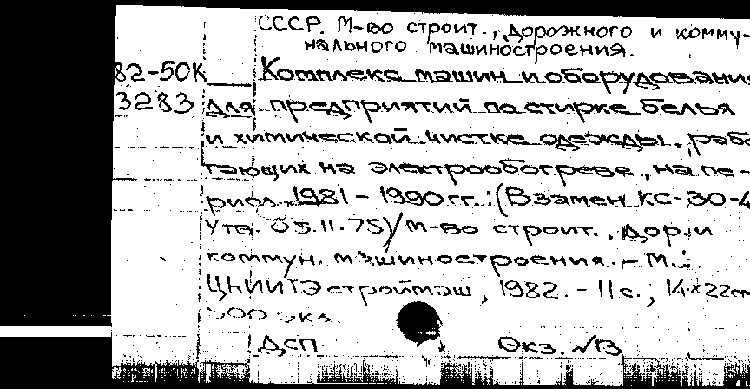 СССР. М-во строит., дорожного и комму-
нального машиностроения.
82-50К Комплекс машин и оборудования
3283 для предприятий по стирке белья
и химической чистке одежды, рабо-
тающих на электрообогреве, на пе-
риод 1981-1990 гг.: (Взамен КС-30-4
Утв. 05.11.75)/М-во строит., дор. и
коммун. машиностроения. - М.:
ЦНИИТЭстроймаш, 1982. - 11 с.; 14×22см
500 экз.
ДСП Экз. №13